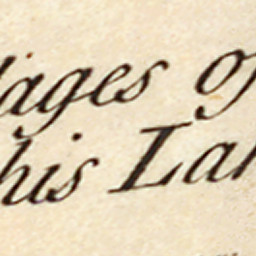 lages of
his Lan